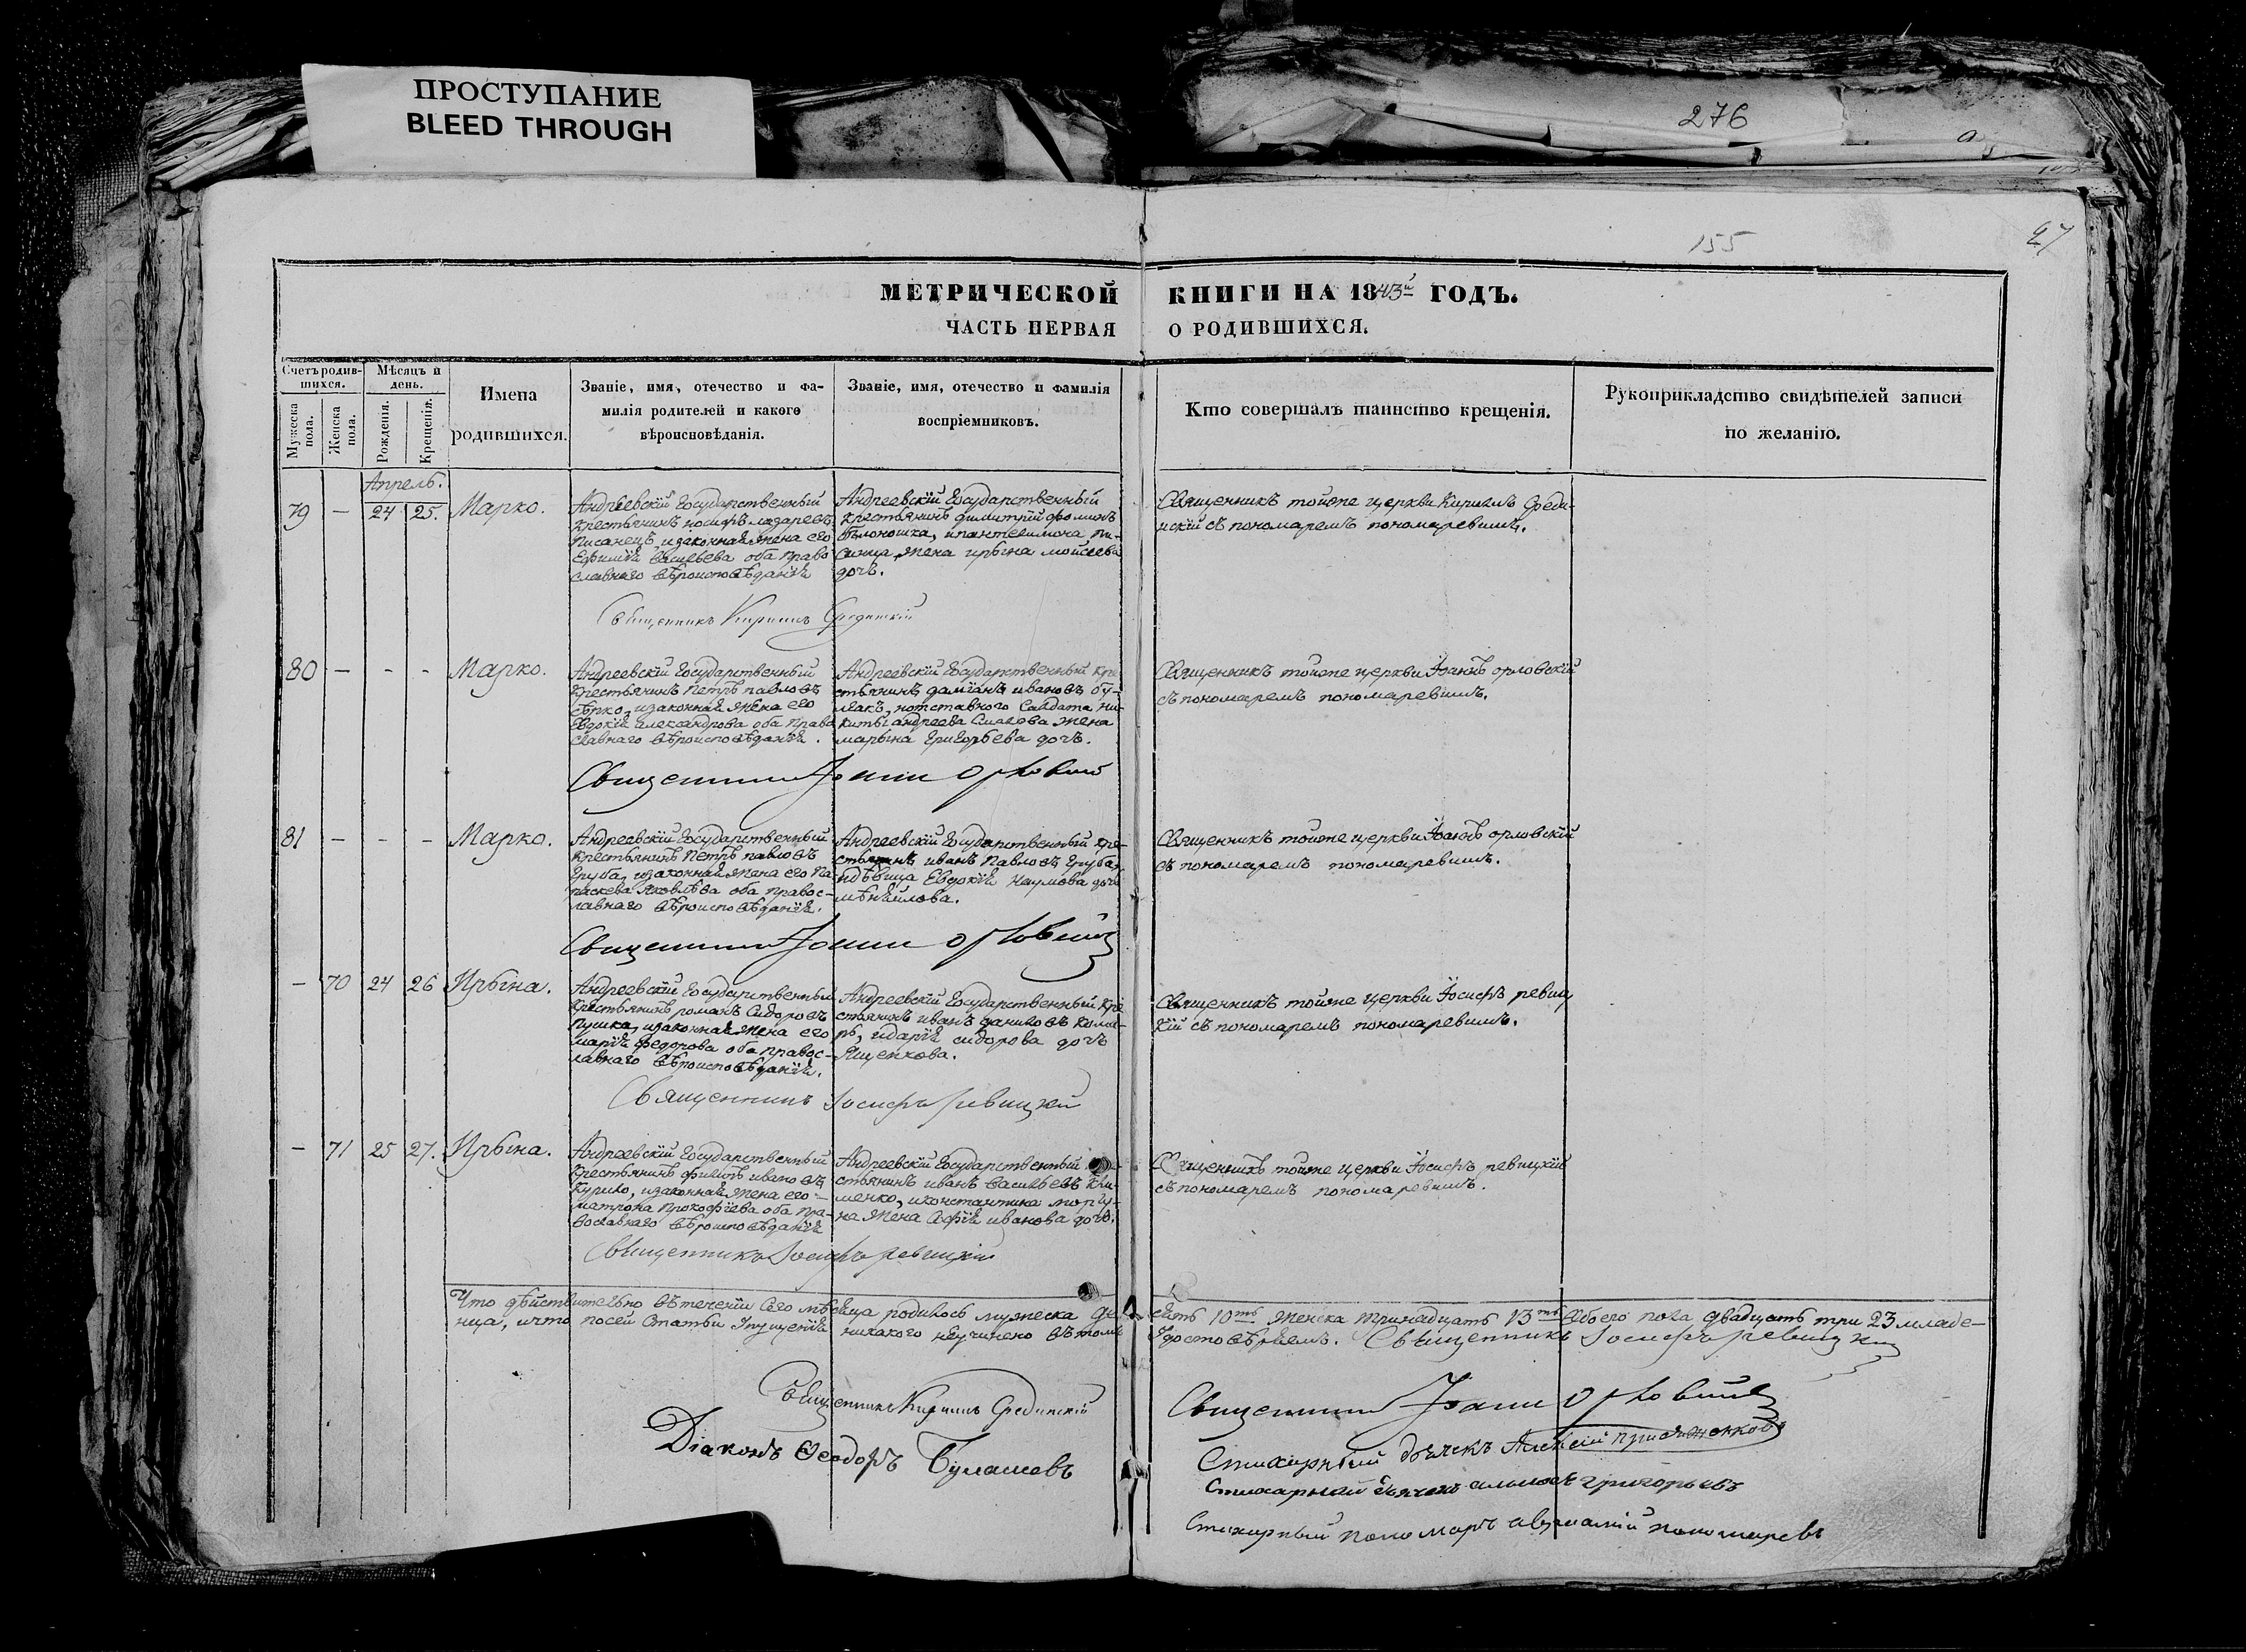 ПРОСТУПАНИЕ
BLEED THROUGH
276
155
27
МЕТРИЧЕСКОЙ КНИГИ НА 1843й ГОДЪ.
ЧАСТЬ ПЕРВАЯ О РОДИВШИХСЯ.
Счетъ родив-
шихся.
Мѣсяцъ и
день.
Мужеска
пола.
Женска
пола.
Рожденія.
Крещенія.
Имена
родившихся.
Званіе, имя, отечество и фа-
милія родителей и какого
вѣроисповѣданія.
Званіе, имя, отечество и фамилія
воспріемниковъ.
Кто совершалъ таинство крещенія.
Рукоприкладство свидѣтелей записи
по желанію.
Апрель.
79 — 24 25. Марко.
Андреевскій Государственный
крестьянинъ иосифъ лазаревъ
писанецъ, изаконная жена его
Ефимія Васильева оба право
славнаго вѣроисповѣданія
Андреевскій Государственный
крестьянинъ димитрій фоминъ
бѣлоношка, ипантелимона пи-
санца жена ирына моисеева
дочь.
Священникъ тойже церкви Кирилъ Среди-
нскій съ пономаремъ пономаревимъ.
Священникъ Кирилъ Срединскій
80 — - - Марко.
Андреевскій Государственный
крестьянинъ Петръ павловъ
сѣрко, изаконная жена его
Евдокія александрова оба право
славнаго вѣроисповѣданія.
Андреевскій Государственный кре
стьянинъ даміанъ ивановъ бу-
лакъ, иотставного Салдата ни-
киты андреева Смакова жена
марына григорьева дочь.
Священникъ тойже церкви Іоаннъ орловскій
съ пономаремъ пономаревимъ.
Священникъ Іоаннъ Орловскій
81 — - - Марко.
Андреевскій Государственный
крестьянинъ Петръ павловъ
Груба, изаконная жена его Па-
раскева Яковлѣва оба правос-
лавнаго вѣроисповѣданія.
Андреевскій Государственный кре-
стьянинъ иванъ Павловъ Груба,
идѣвица Евдокія Наумова дочь
Священникъ тойже церкви Іоаннъ орловскій
съ пономаремъ пономаревимъ.
Священникъ Іоаннъ орловскій
— 70 24 26 Ирына.
Андреевскій Государственный
крестьянинъ романъ Сидоровъ
Пушка, изаконная жена его
марія федорова оба правос-
лавнаго вѣроисповѣданія.
Андреевскій Государственный кре
стьянинъ иванъ даниловъ кома-
ръ, идарія сидорова дочь
Ященкова.
Священникъ тойже церкви Іосифъ ревиц
кій съ пономаремъ пономаревимъ.
Священникъ Іосифъ ревицкій
— 71 25 27. Ирына.
Андреевскій Государственный
крестьянинъ филипъ ивановъ
Курило, изаконная жена его
матрона Прокофіева оба пра-
вославнаго вѣроисповѣданія
Андреевскій Государственный
стьянинъ иванъ васильевъ Кли-
менко, иконстантина моргу-
на жена Софія иванова дочь.
Священникъ тойже церкви Іосифъ ревицкій
съ пономаремъ пономаревимъ.
Священникъ Іосифъ ревицкій
Что дѣйствительно въ теченіи сего мѣсяца родилось мужеска де сять 10ть женска тринадцать 13ть обоего пола двадцать три 23 младе-
нца, ичто посей статьи упущенія никакого неучинено въ томъ удостовѣряемъ. Священникъ Іосифъ ревицкій
Священникъ Кирилъ Срединскій
Священникъ Іоаннъ Орловскій
Діаконъ Ѳеодоръ Бумашевъ
Стихарный дьячекъ Алексій
Стихарный дьячекъ григорьевъ
Стихарный пономарь аврамій пономаревъ